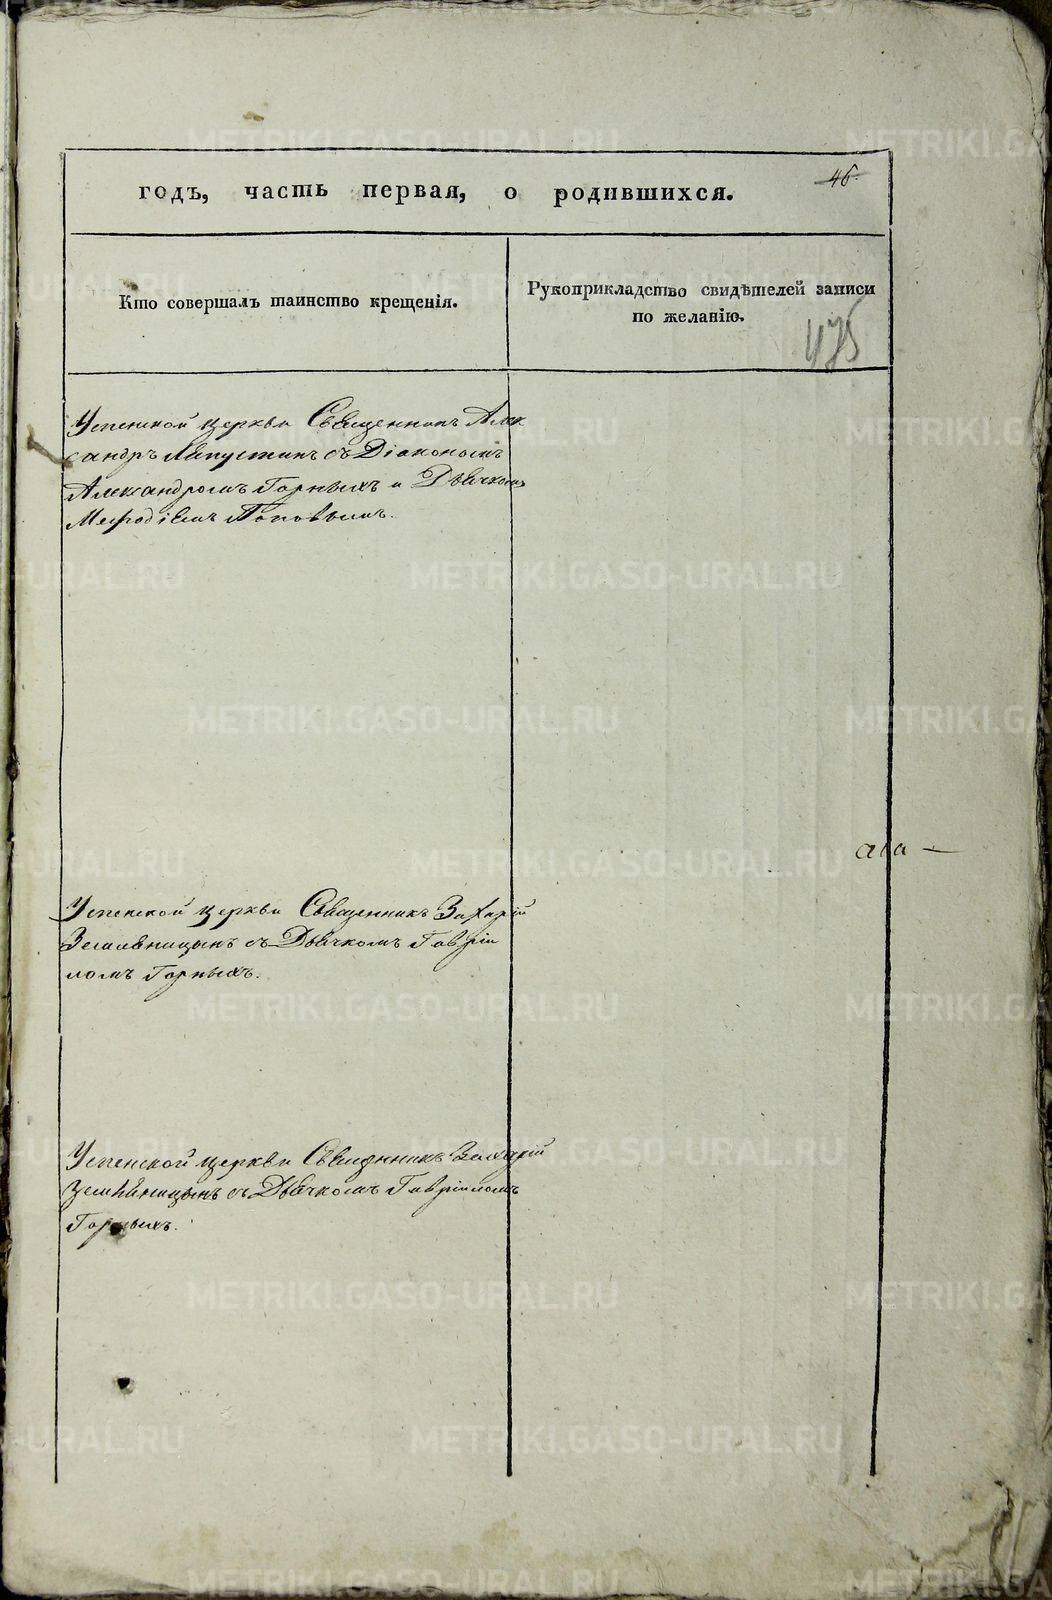 46.
годъ, часть первая, о родившихся.
Кто совершалъ таинство крещенія.
Рукоприкладство свидѣтелей записи
по желанію.
475
Успенской церкви Священникъ Алек
сандръ Лапустинъ съ Діакономъ
Александромъ Горныхъ и Дьячкомъ
Мефодіемъ Поповымъ.
Успенской церкви Священникъ Захарій
съ Дьячкомъ Гавріи
ломъ Горныхъ.
Успенской церкви Священникъ Захарій
съ Дьячкомъ Гавріиломъ
Горныхъ.
METRIKI.GASO-URAL.RU